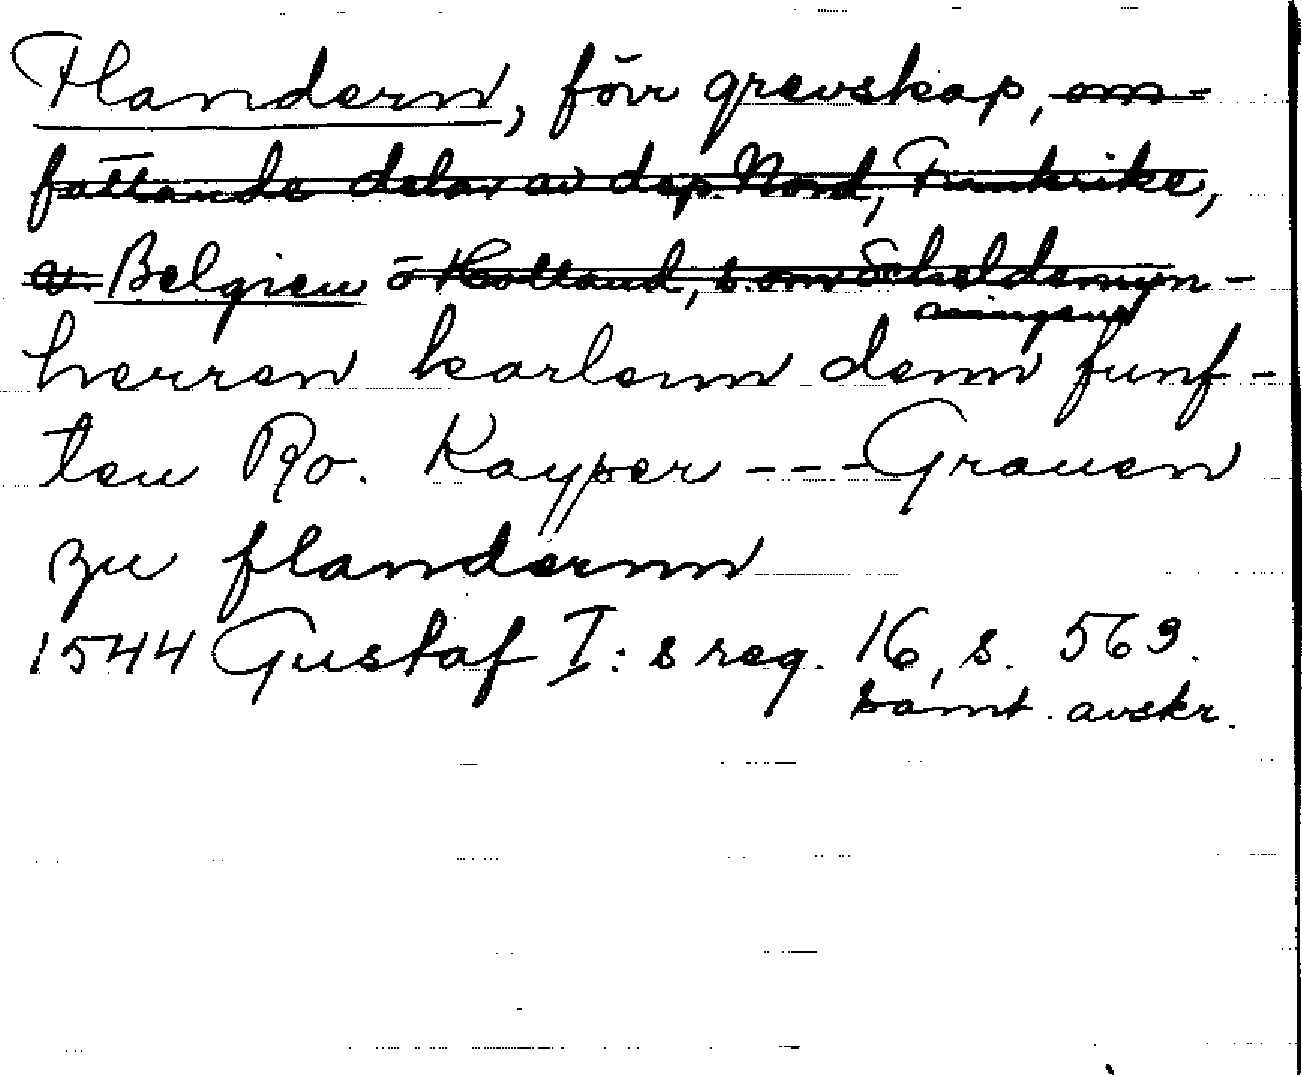 Flandern, förr grevskap, om-
fattande delar av dep. Nord, Frankrike,
av Belgien o Holland, s. om Scheldemyn-
ningend
herren karlenn denn funf-
ten Ro. Kayper --- Grauen
zu flandernn
1544 Gustaf I:s reg. 16, s. 569.
samt. avskr.